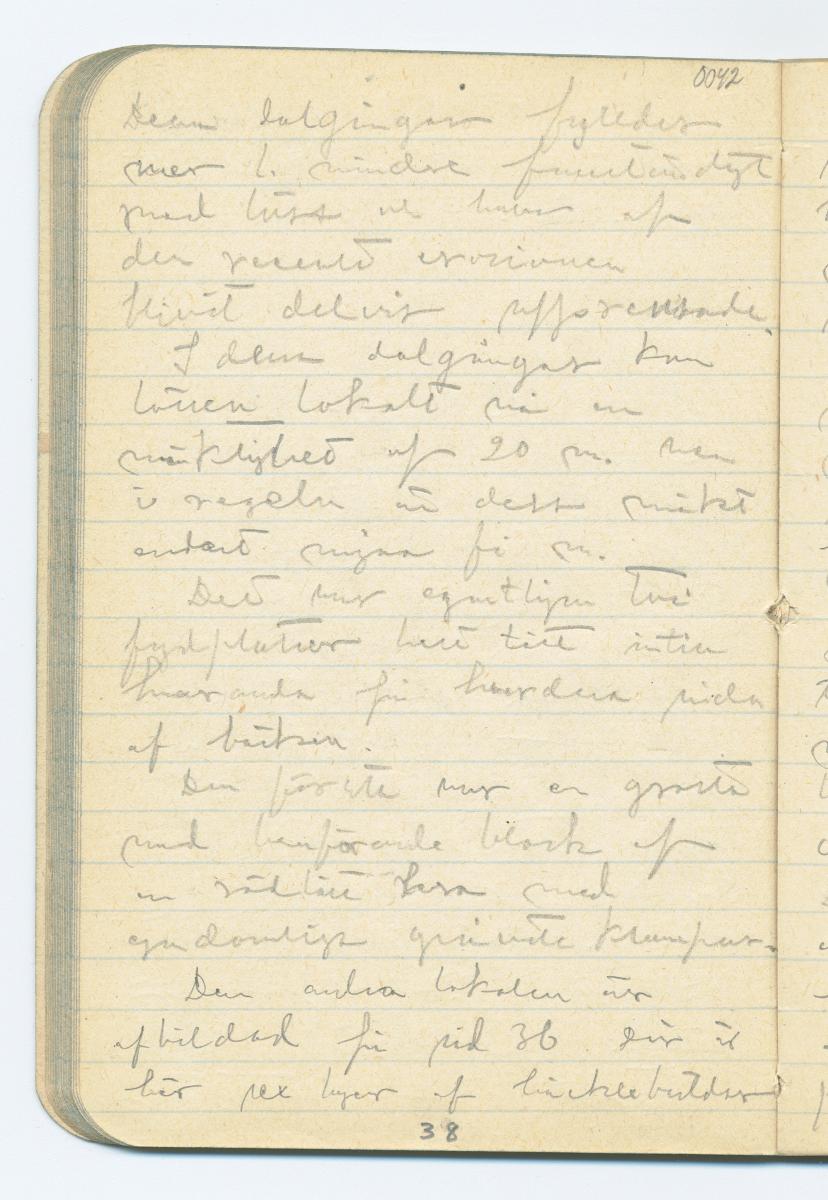 0042
Dessa dalgångar fylldes
mer l. mindre fullständigt
med löss och hava af
den recenta erosionen
blivit delvis uppresnade.
I dessa dalgångar kan
lössen lokalt nå en
mäktighet af 20 m. men
i regeln är dess mäkt
endast några få m.
Det var egentligen två
fyndplatser helt tätt intill
hvarandra på hvardera sidan
af bäcken.
Den första var en grotta
med benförande block af
en rödlätt lera med
egendomliga gråvita klumpar.
Den andra lokalen är
afbildad på sid 36 där är
här sex lager af
38